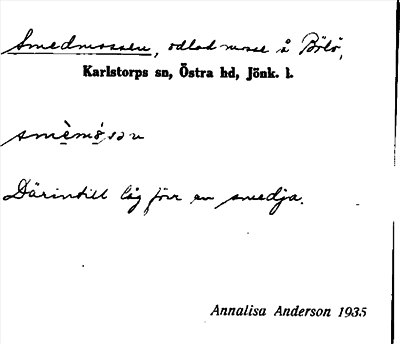 Smedmossen, odlad mosse å Bölö,
Karlstorps sn, Östra hd, Jönk. l.
smèmò̀sən
Därintill låg förr en smedja.
Annalisa Anderson 1935